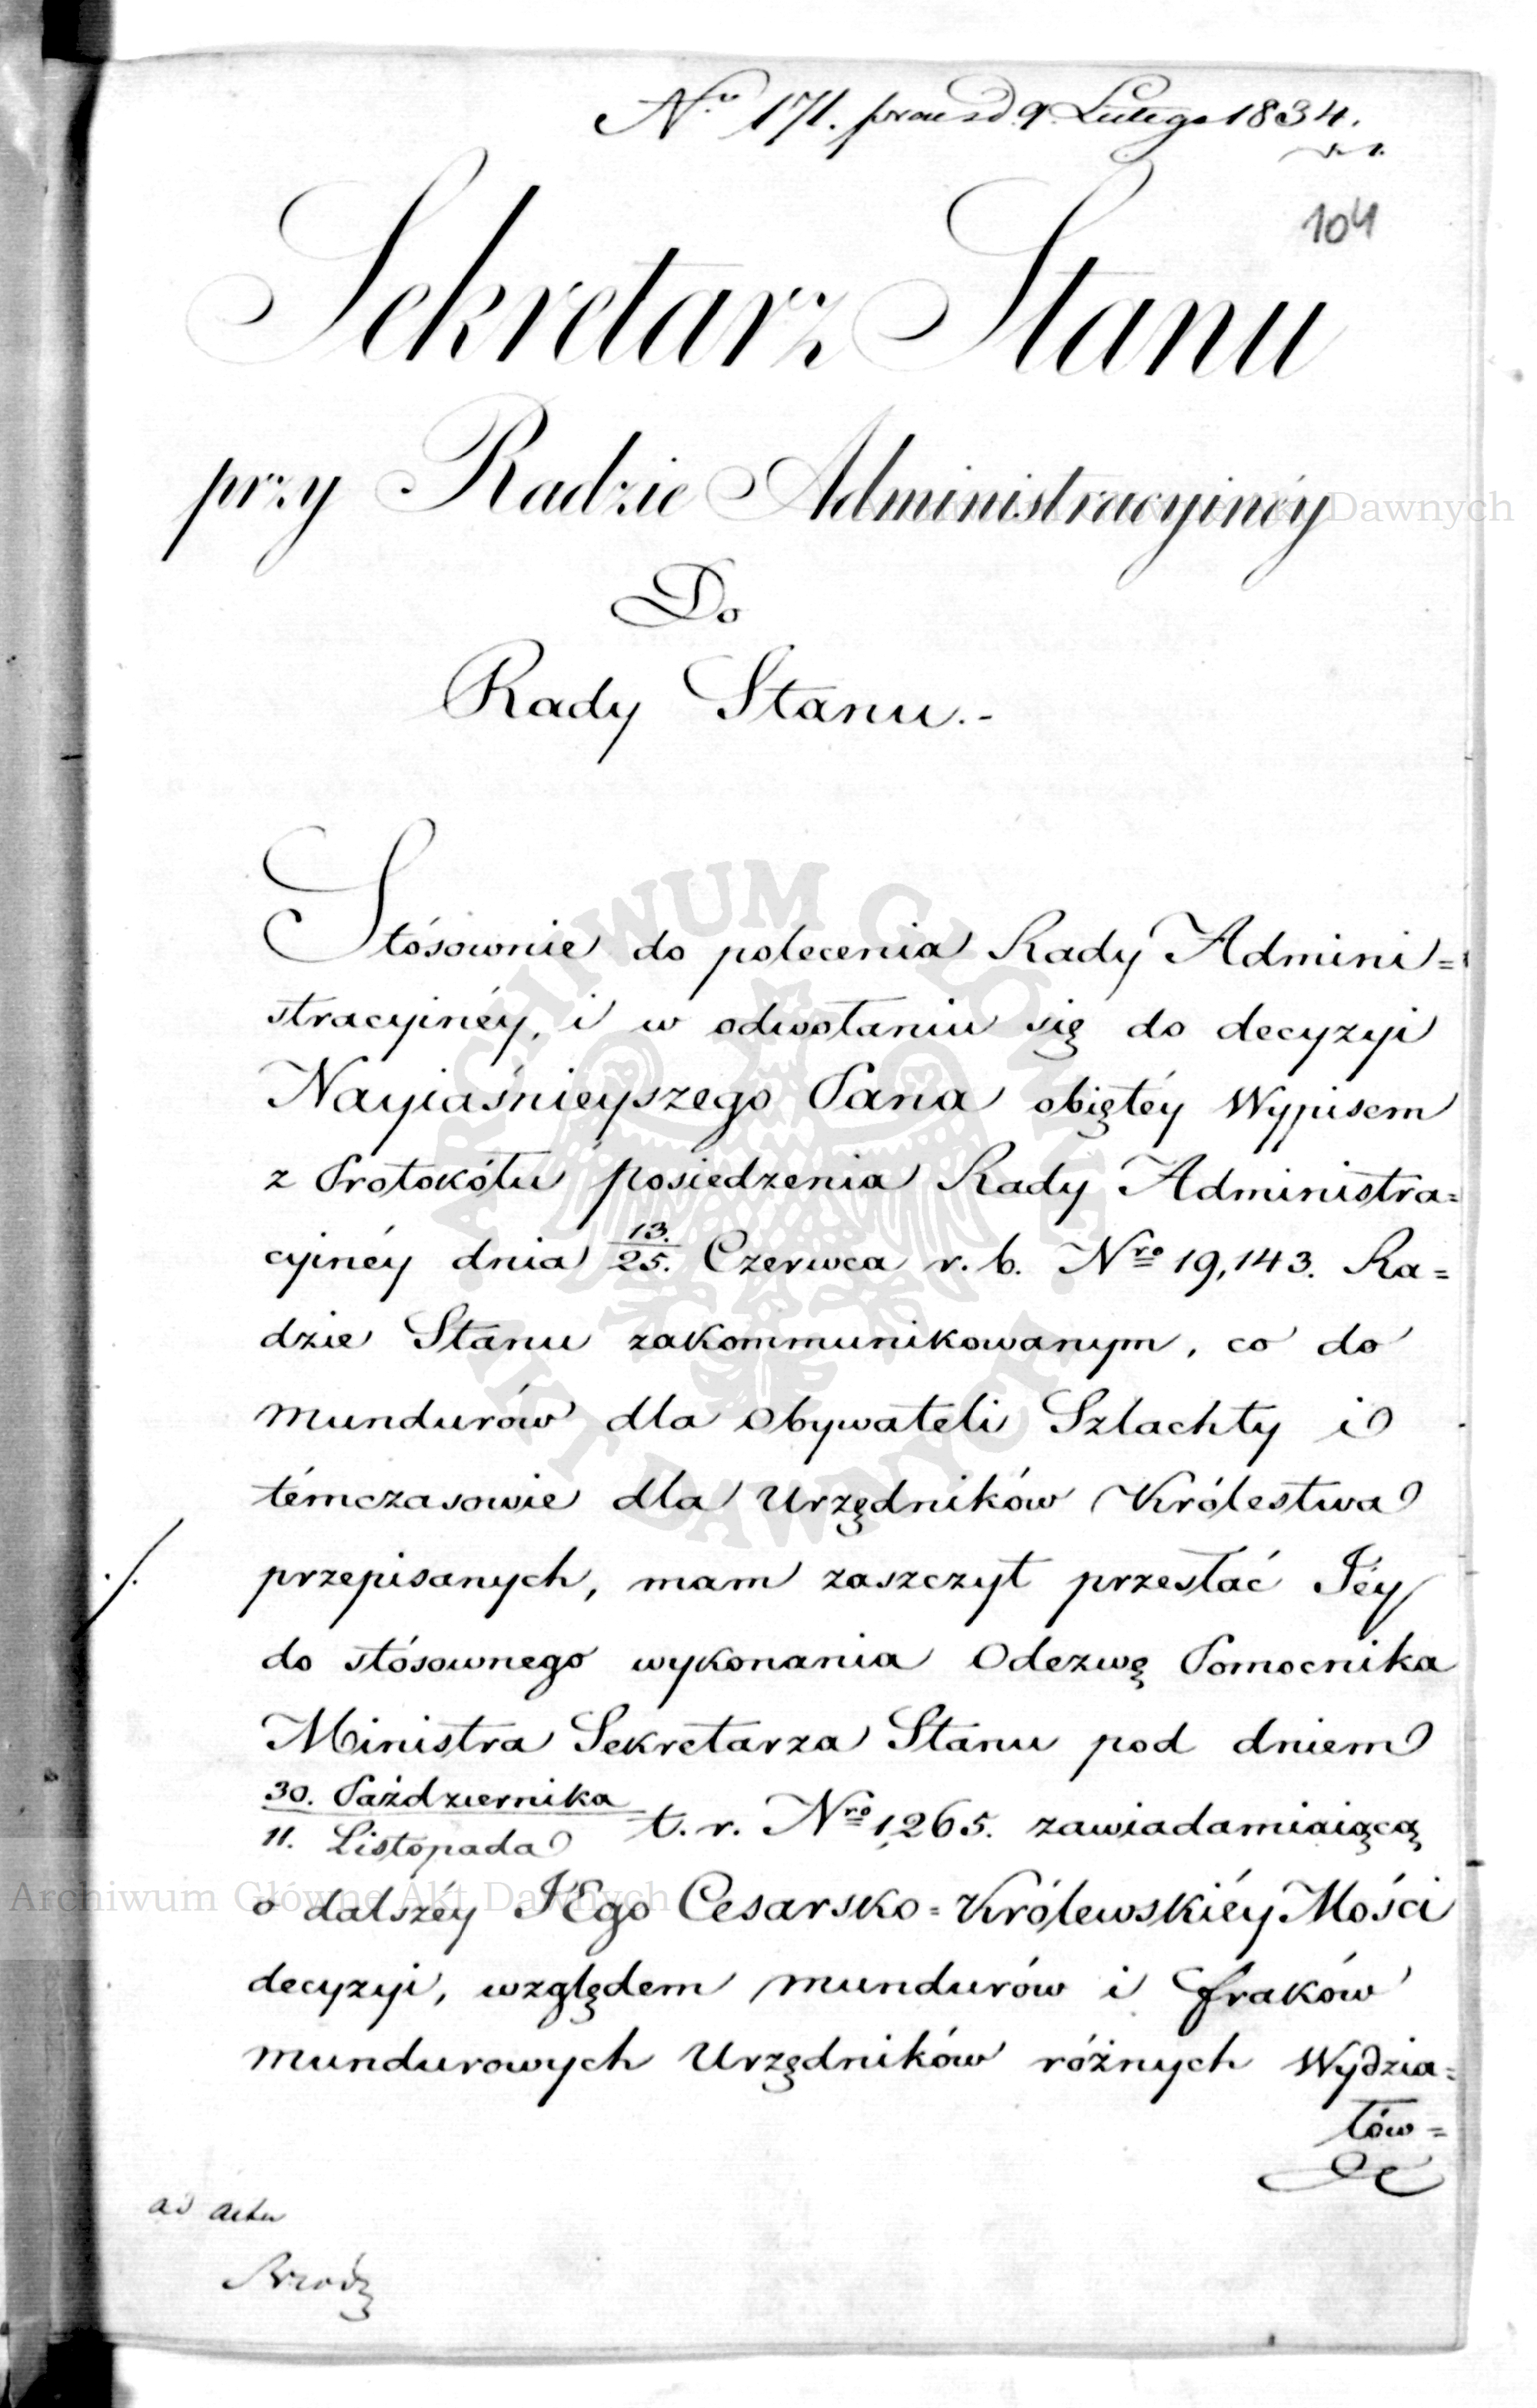 Nro 171. praes d. 9 Lutego 1834.
104
Sekretarz Stanu
przy Radzie Administracyinéy
Do
Rady Stanu.-
Stósownie do polecenia Rady Admini=
stracyinéy, i w odwołaniu się do decyzyi
Nayiaśnieyszego Pana obiętéy Wypisem
z Protokółu posiedzenia Rady Administra=
cyinéy dnia 13./25. Czerwca r. b. Nro 19,143. Ra=
dzie Stanu zakommunikowanym, co do
mundurów dla Obywateli Szlachty i
témczasowie dla Urzędników Królestwa
./. przepisanych, mam zaszczyt przesłać Jéy
do stósownego wykonania Odezwę Pomocnika
Ministra Sekretarza Stanu pod dniem
30. Października / 11. Listopada t. r. Nro 1,265. zawiadamiaiącą
o dalszéy JEgo Cesarsko=Królewskiéy Mości
decyzyi, względem mundurów i fraków
mundurowych Urzędników różnych Wydzia=
łów=
ad acta
Archiwum Główne Akt Dawnych
ARCHIWUM GŁÓWNE AKT DAWNYCH